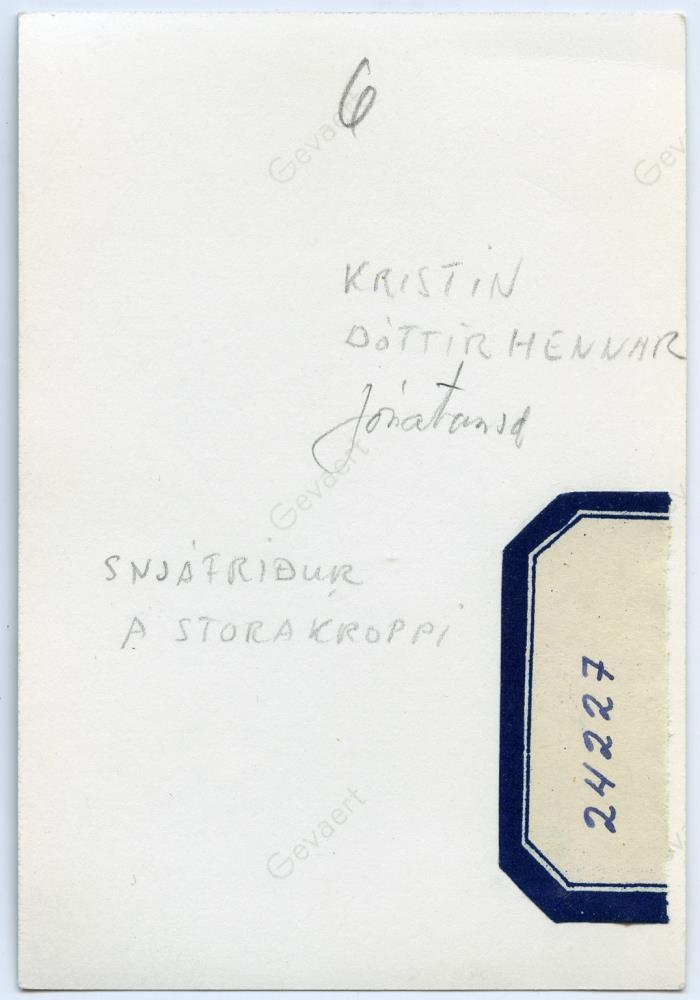 6
Gevaert
Gevaert
KRISTIN
DÓTTIR HENNAR
Jónatansd
Gevaert
SNJÁFRIÐUR
A STORAKROPPI
24227
Gevaert